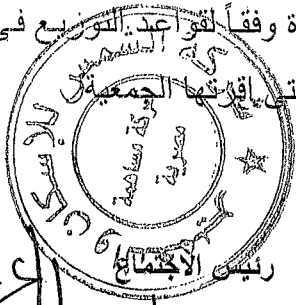 ة وفقاً لقواعد التوزيع في
تى اقرتها الجمعية
شركة مساهمة
مصرية
رئيس الاجتماع